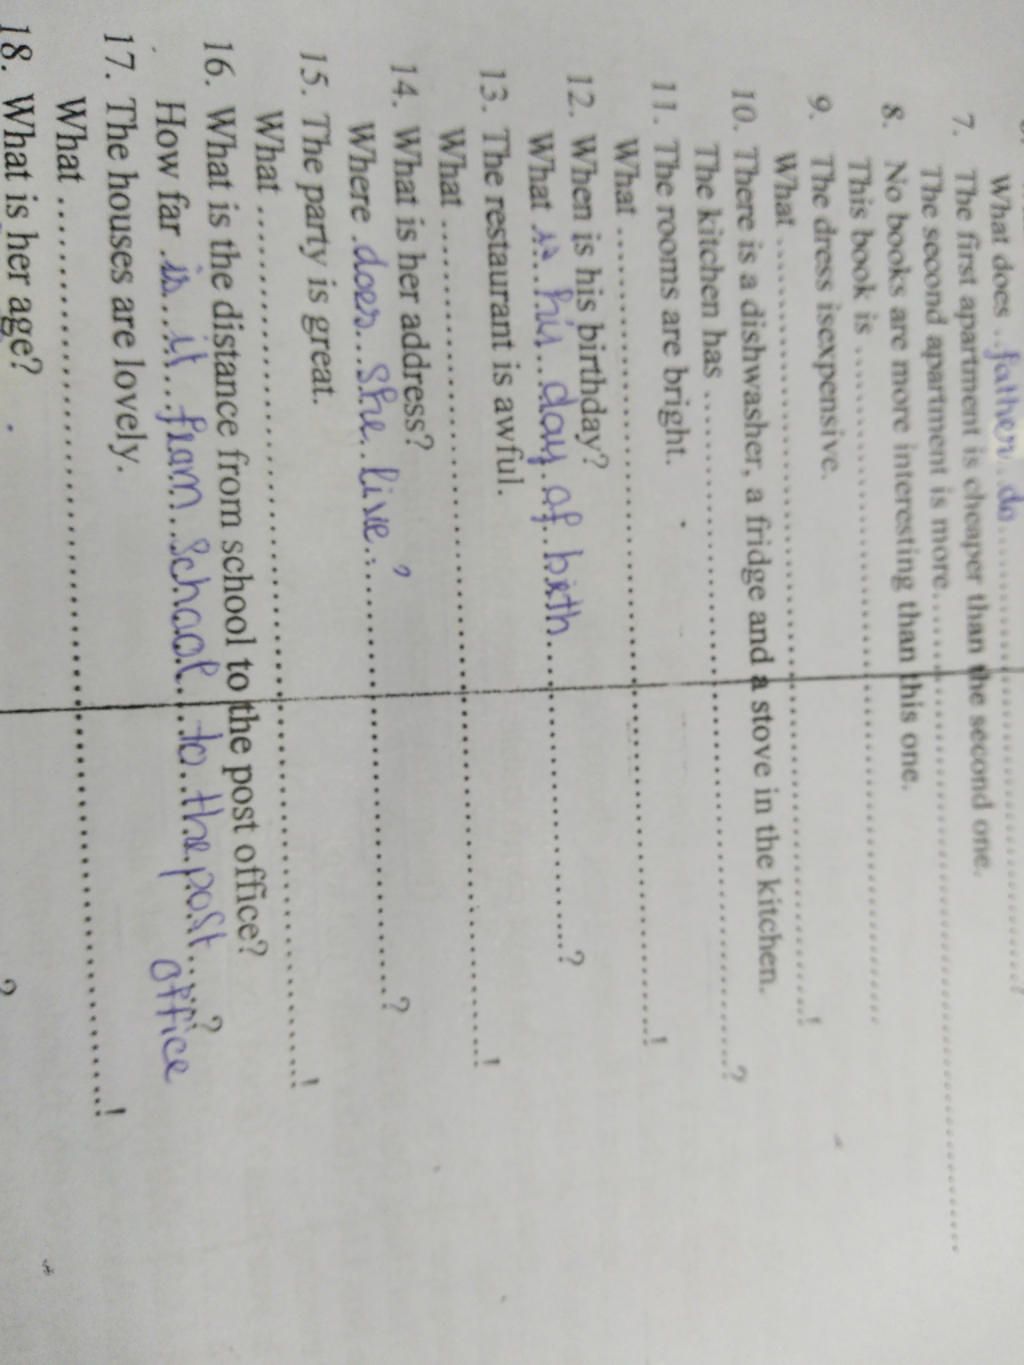 What does ..father..do..............................?
7. The first apartment is cheaper than the second one.
The second apartment is more..............................
8. No books are more interesting than this one.
This book is ..............................
9. The dress isexpensive.
What ..............................!
10. There is a dishwasher, a fridge and a stove in the kitchen.
The kitchen has ..............................?
11. The rooms are bright.
What ..............................!
12. When is his birthday?
What is his day of birth..............................?
13. The restaurant is awful.
What ..............................!
14. What is her address?
Where does she live?..............................?
15. The party is great.
What ..............................!
16. What is the distance from school to the post office?
How far is it from school to the post ......?
office
17. The houses are lovely.
What ..............................!
18. What is her age?
?